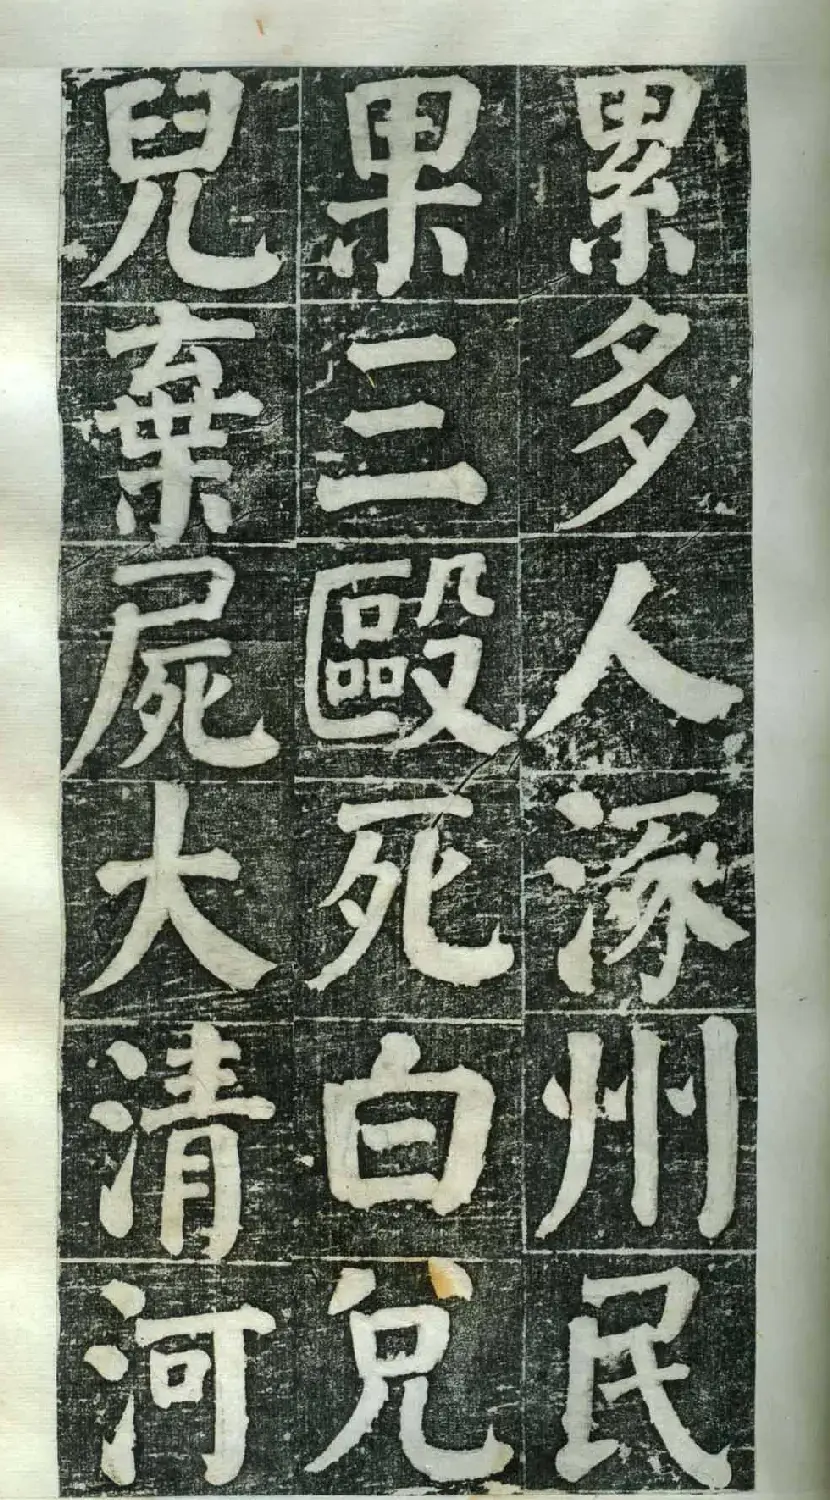 累多人涿州民
果三毆死白兌
兒棄屍大清河